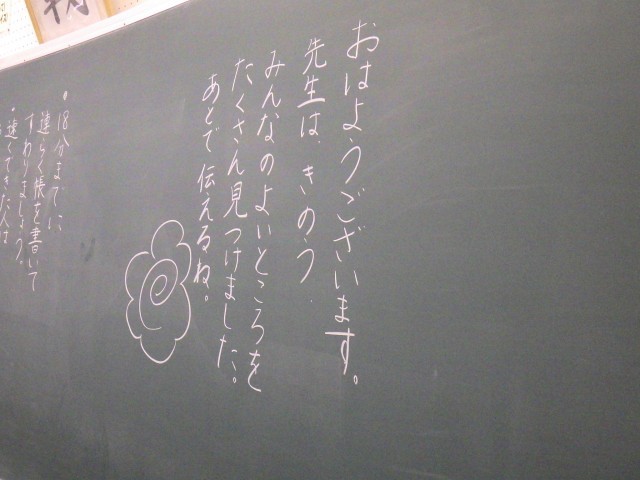 おはようございます。
先生は、きのう、
みんなのよいところを
たくさん見つけました。
あとで伝えるね。
・18分までに
連らく帳を書いて
すわりましょう。
・速くできた人は